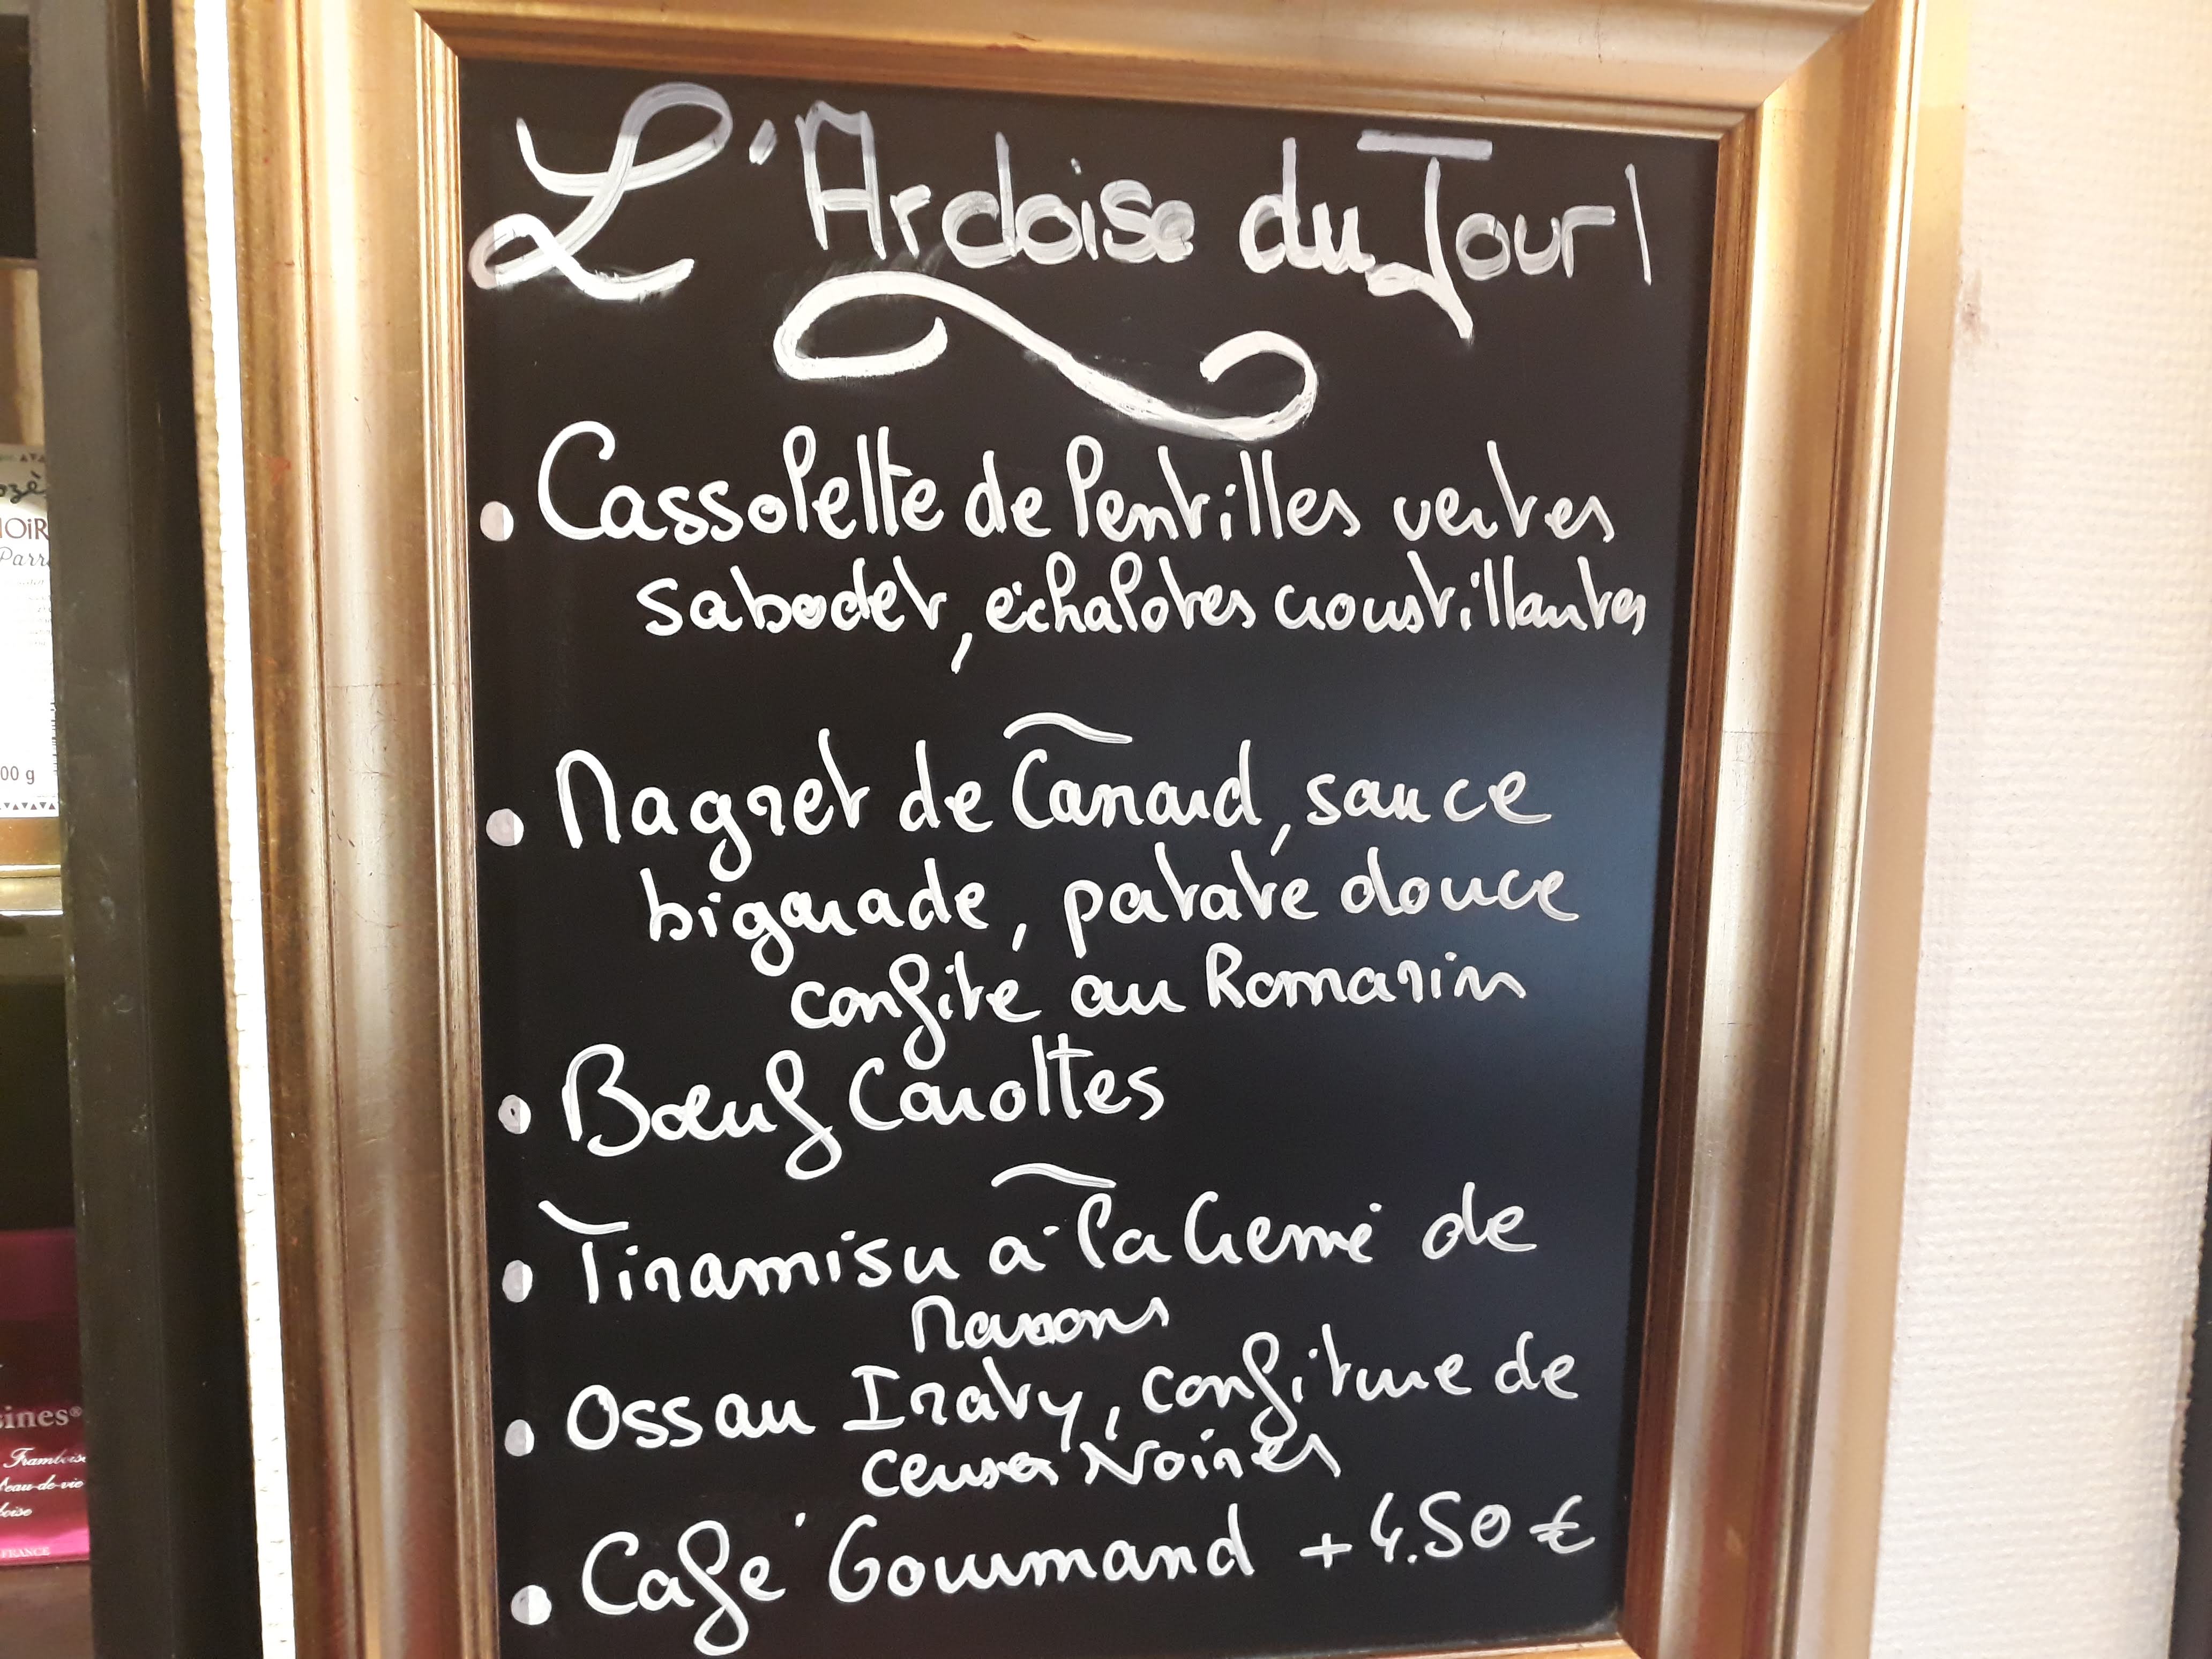 L'Ardoise du Jour
• Cassolette de lentilles vertes
sabodet, échalotes croustillantes
• Magret de Canard, sauce
bigarade, patate douce
confite au Romarin
• Bœuf Carottes
• Tiramisu à la Crème de
Marrons
• Ossau Iraty, confiture de
cerises Noires
• Café Gourmand + 4.50 €
NOIR
00 g
sines®
Framboise
eau-de-vie
FRANCE